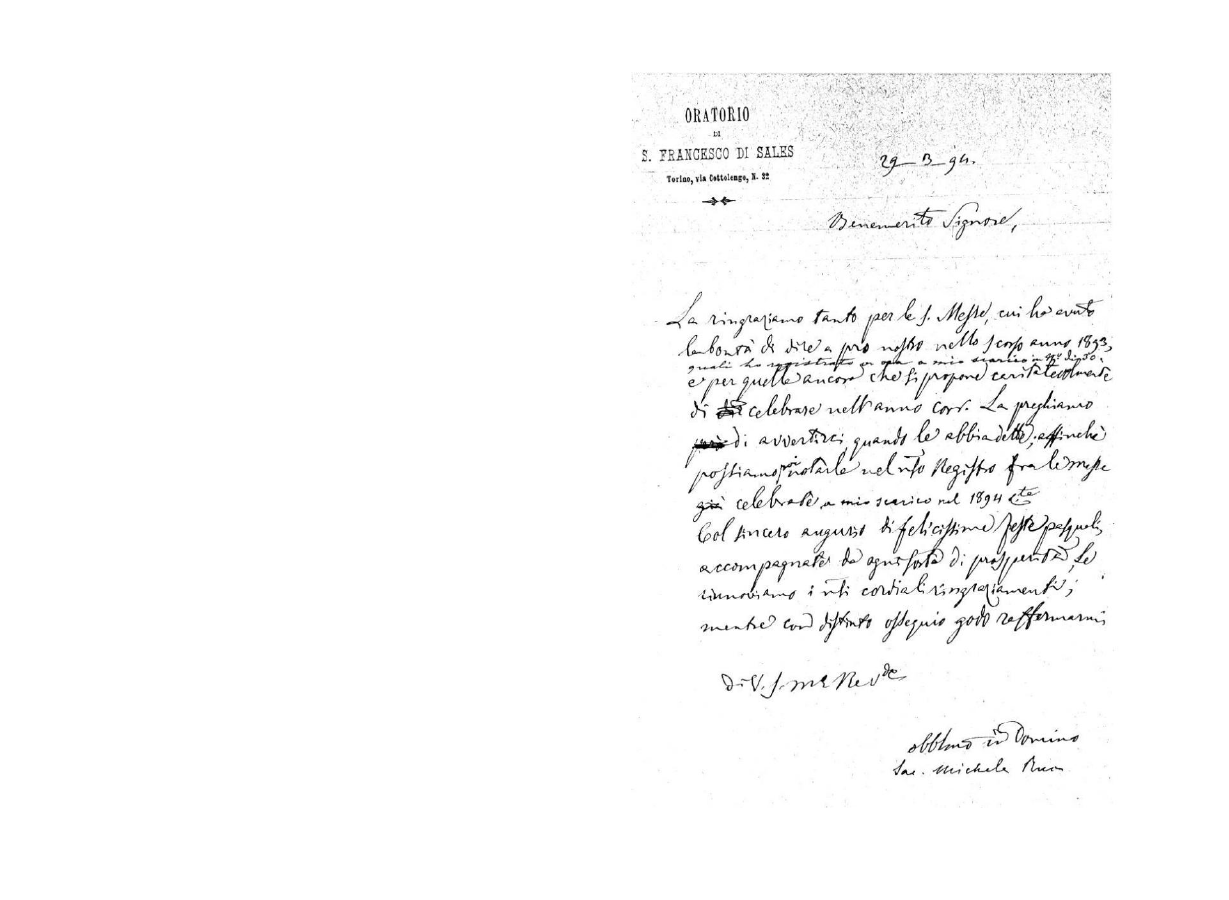 ORATORIO
DI
S. FRANCESCO DI SALES
Torino, via Cottolengo, N. 32
29_ _94.
Benemerito Signore,
La ringraziamo tanto per le s. Messe, cui ha avuto
la bontà di dire a pro nostro nello scorso anno 1893,
quali ho registrato a mio scarico in n° di 50.
e per quelle ancora che si propone caritatevolmente
di celebrare nell'anno corr. La preghiamo
di avvertirci quando le abbia dette, affinchè
possiamo poi notarle nel nro Registro fra le messe
già celebrate, a mio scarico nel 1894
Col sincero augurio di felicissime feste pasquali,
accompagnate da ogni sorta di prosperità, Le
rinnoviamo i nti cordiali ringraziamenti;
mentre con distinto ossequio godo raffermarmi
Di V. S. Rev
obblmo in Domino
Sac. Michele Rua